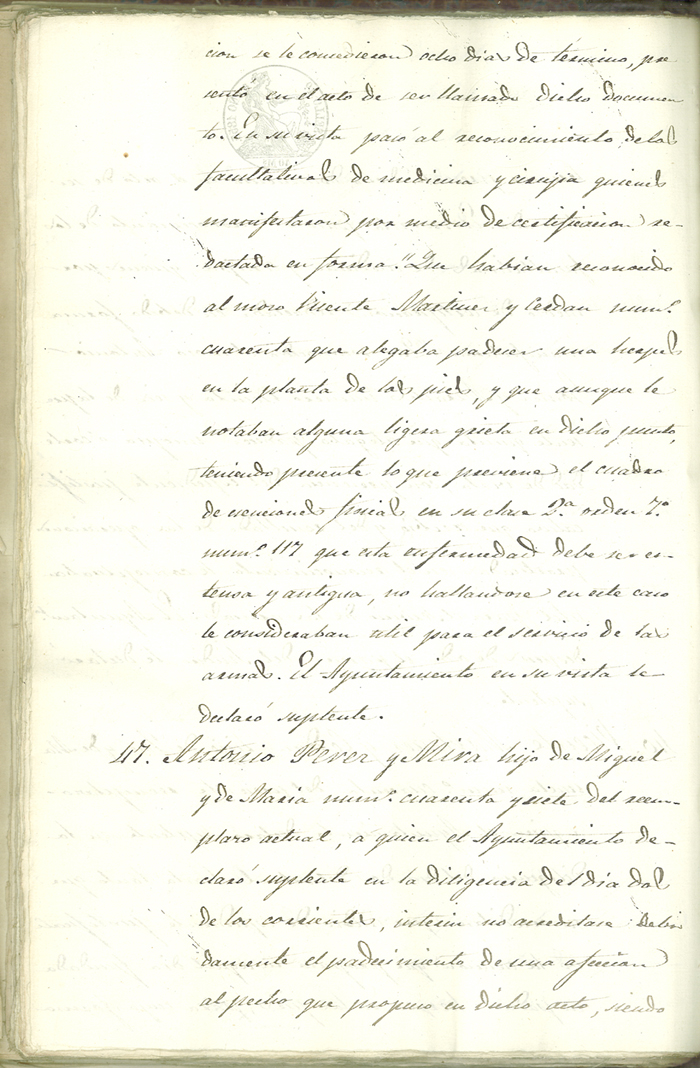 cion se le concedieron ocho dias de término, pre
sentó en el acto de ser llamado dicho documen
to. En su vista pasó al reconocimiento de los
facultativos de medicina y cirujia quienes
manifestaron por medio de certificacion re-
dactada en forma. "Que habian reconocido
al mozo Vicente Martinez y Cerdan num.º
cuarenta que alegaba padecer una herpes
en la planta de los pies, y que aunque le
notaban alguna ligera grieta en dicho punto,
teniendo presente lo que previene el cuadro
de esenciones fisicas en su clase 2.ª orden 7.º
num.º 117 que esta enfermedad debe ser es-
tensa y antigua, no hallandose en este caso
le consideraban util para el servicio de las
armas. El Ayuntamiento en su vista le
declaró suplente.
47. Antonio Perez y Mira hijo de Miguel
y de Maria num.º cuarenta y siete del reem-
plazo actual, a quien el Ayuntamiento de-
claró suplente en la diligencia del dia dos
de los corrientes, interin no acreditase debi
damente el padecimiento de una afeccion
al pecho que propuso en dicho acto, siendo